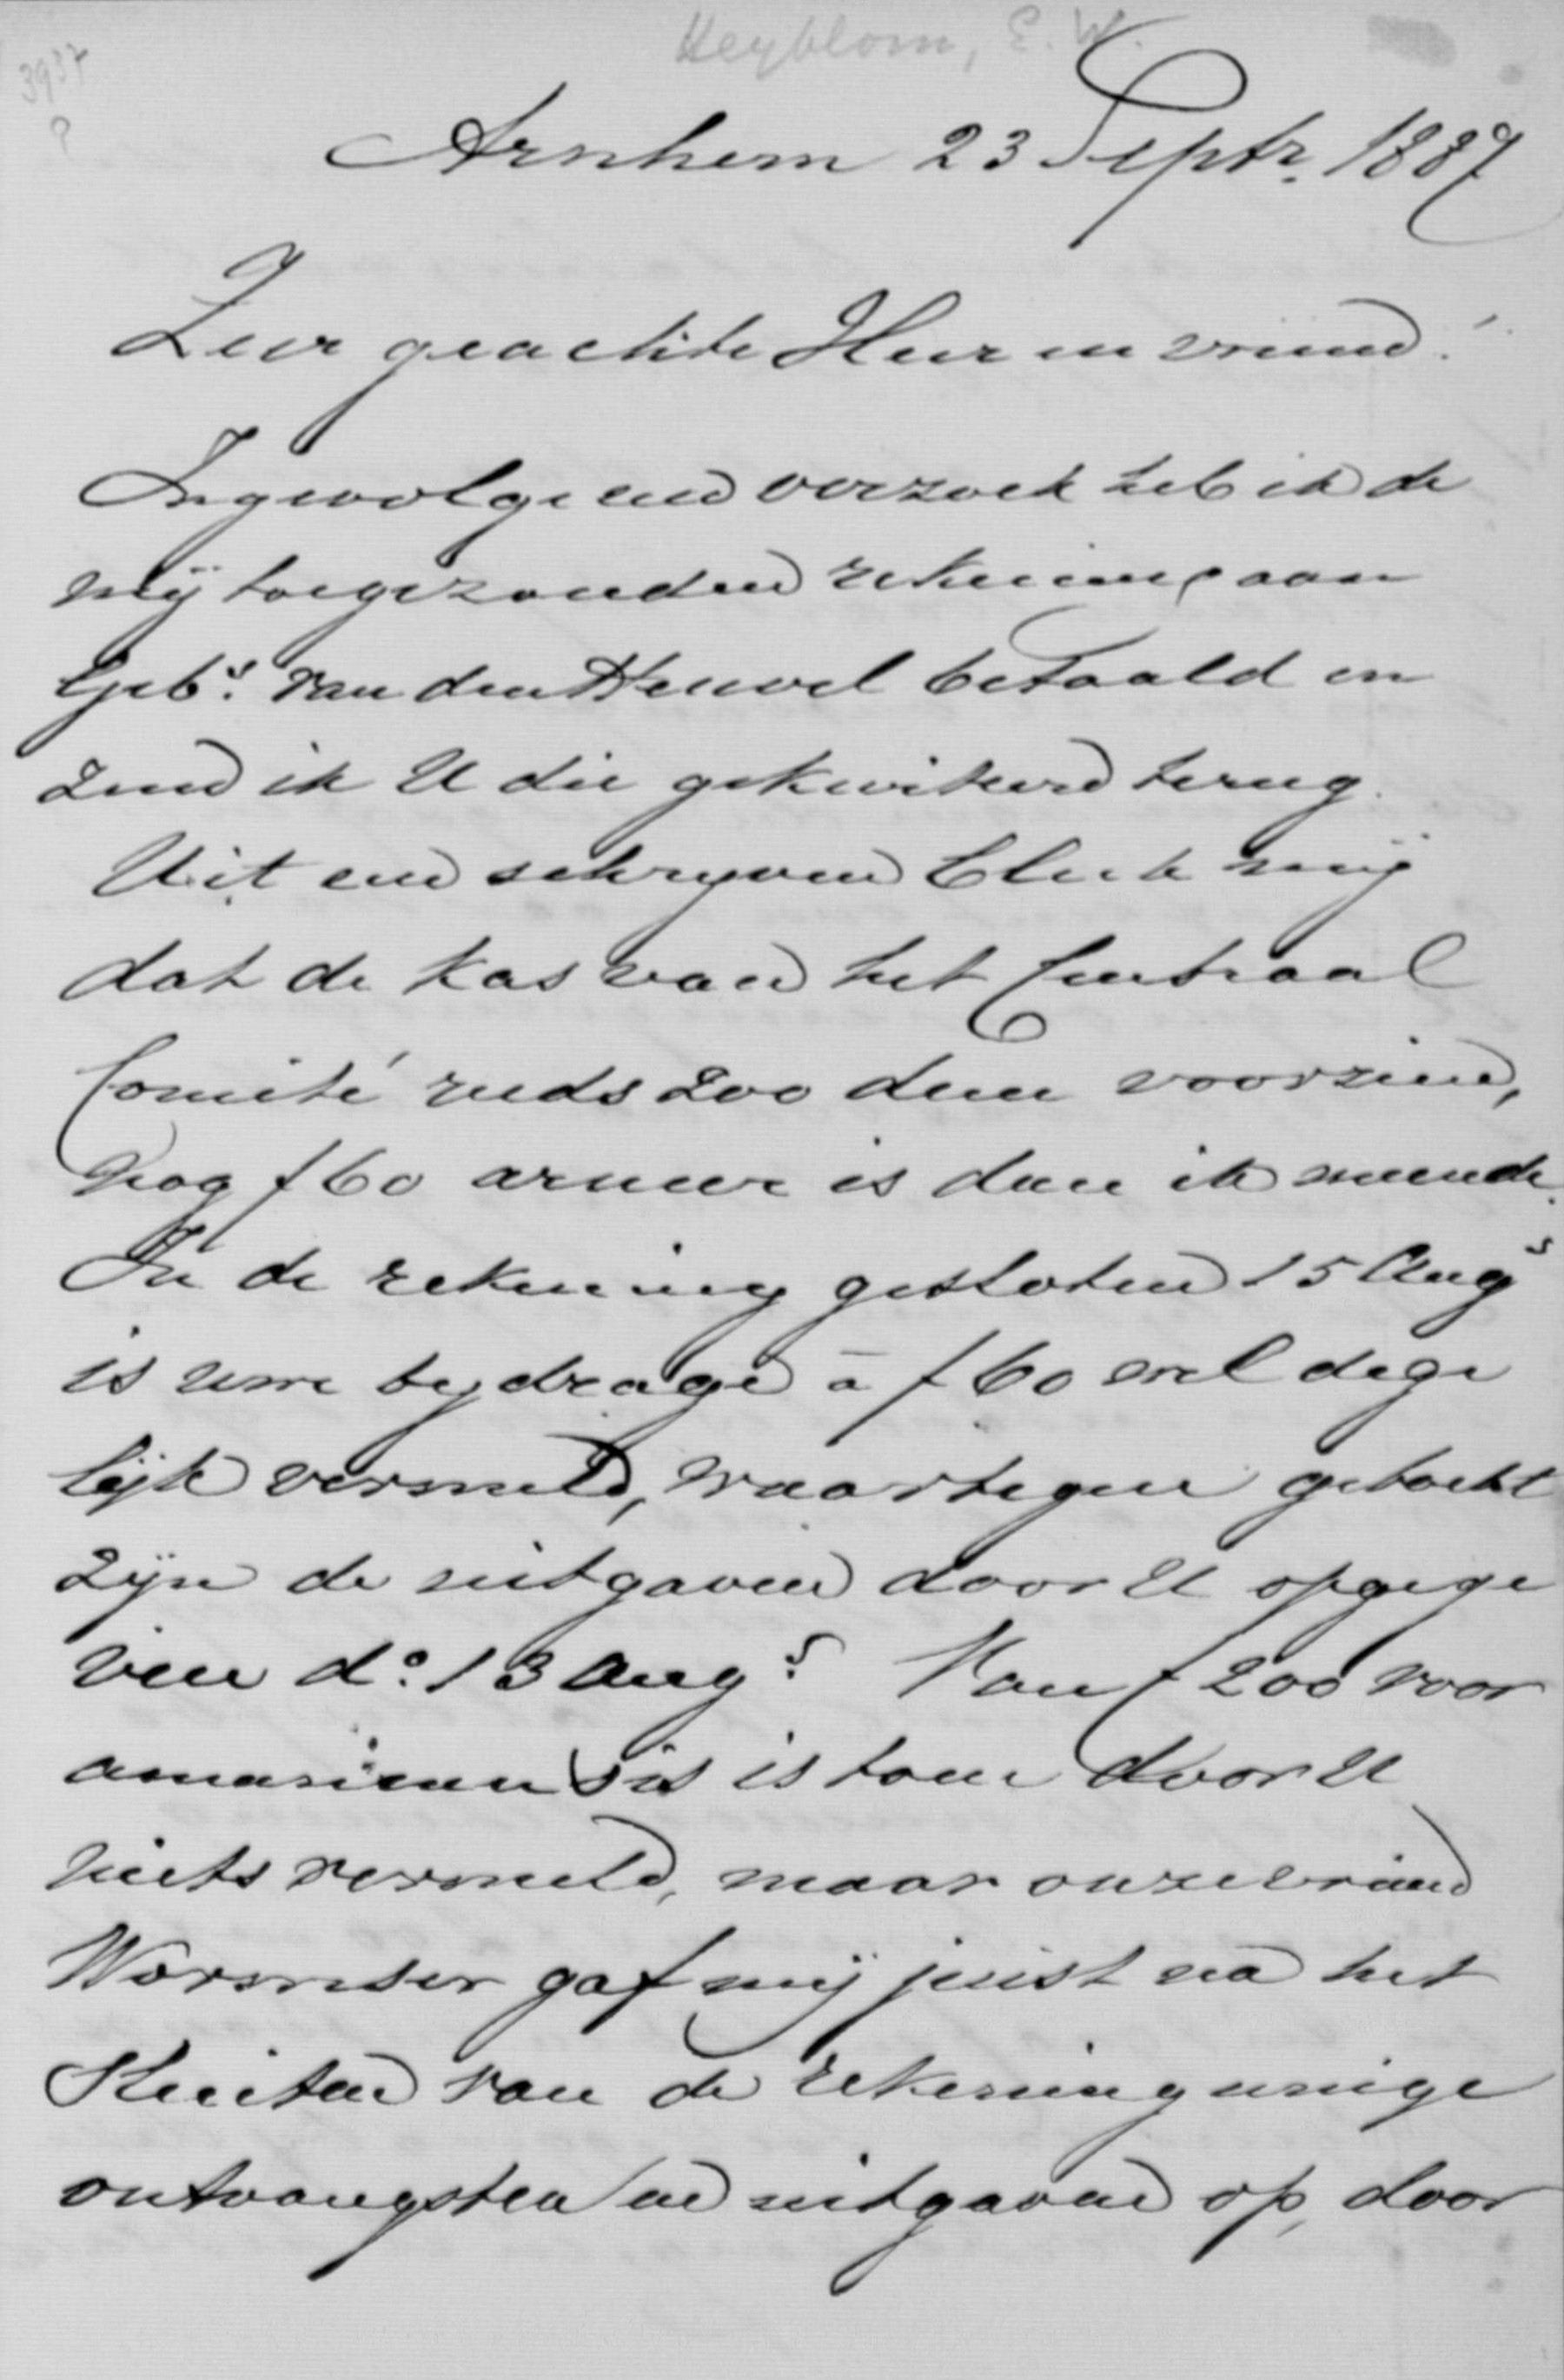 Heyblom, E. W.
3937
?
Arnhem 23 Septr. 1887
Zeer geachte Heer en vriend!
Ingevolge uw verzoek heb ik de
mij toegezonden rekening aan
Gebs. van den Heuvel betaald en
zend ik U die gekwiteerd terug.
Uit uw schrijven bleek mij
dat de kas van het Centraal
Comité reeds zoo dun voorzien,
nog f 60 armer is dan ik meende.
In de rekening gesloten 15 Augs
is uwe bijdrage à f 60 wel dege
lijk vermeld, waartegen geboekt
zijn de uitgaven door U opgege
ven do. 13 Augs. Van f 200 voor
is toen door U
niets vermeld, maar onze vriend
Wormser gaf mij juist na het
sluiten van de rekening eenige
ontvangsten en uitgaven op, door